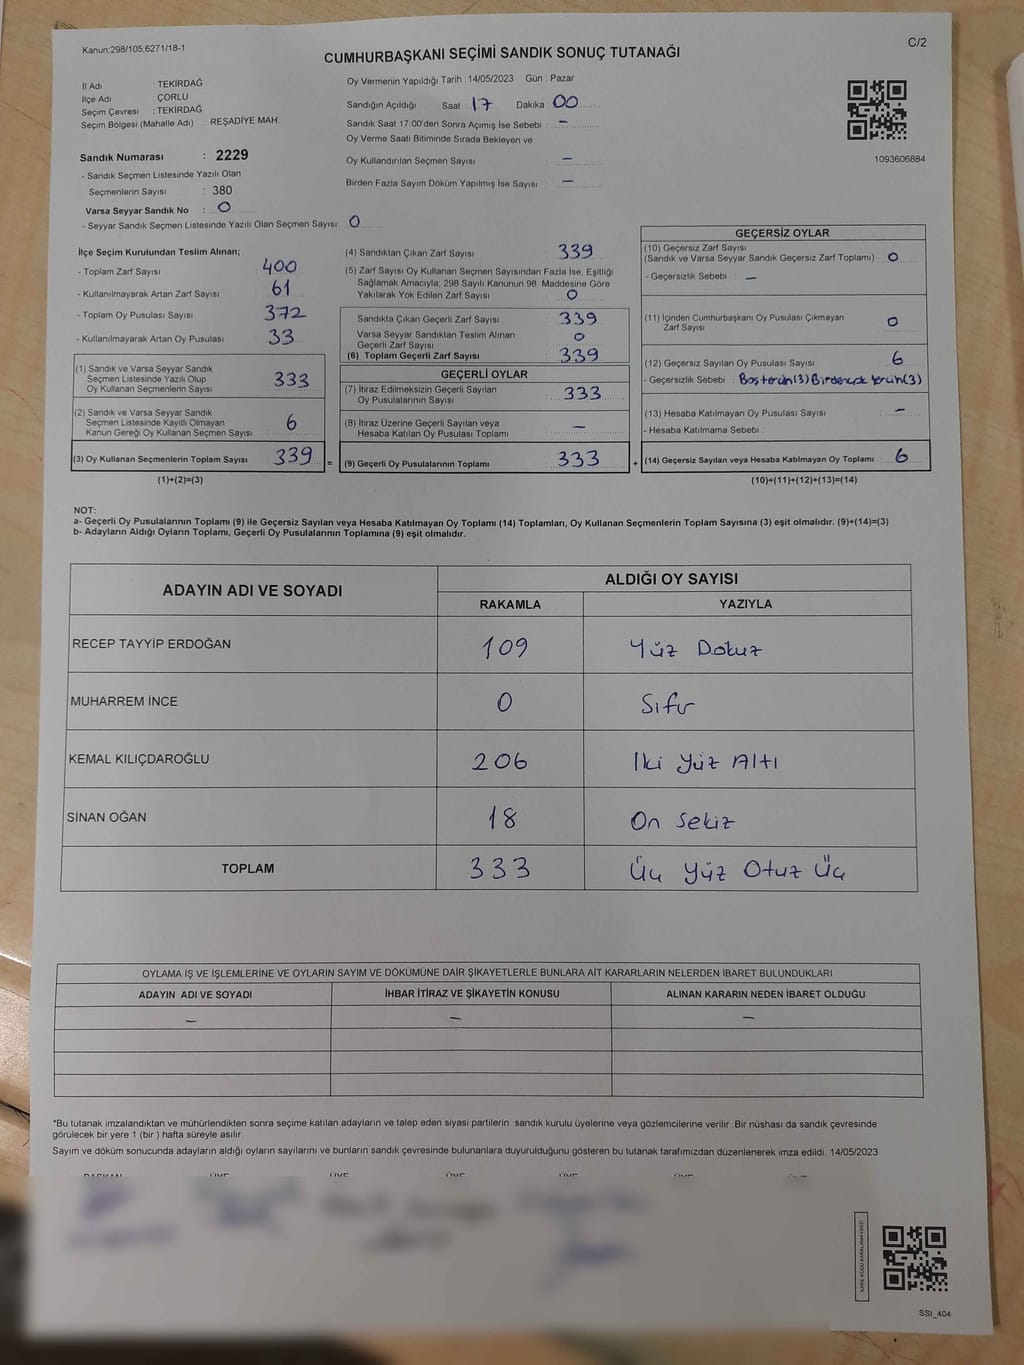 Kanun:298/105;6271/18-1
C/2
CUMHURBAŞKANI SEÇİMİ SANDIK SONUÇ TUTANAĞI
İl Adı : TEKİRDAĞ
İlçe Adı : ÇORLU
Seçim Çevresi : TEKİRDAĞ
Seçim Bölgesi (Mahalle Adı) : REŞADİYE MAH.
Sandık Numarası : 2229
- Sandık Seçmen Listesinde Yazılı Olan
Seçmenlerin Sayısı : 380
Varsa Seyyar Sandık No : 0
- Seyyar Sandık Seçmen Listesinde Yazılı Olan Seçmen Sayısı: 0
Oy Vermenin Yapıldığı Tarih :14/05/2023 Gün : Pazar
Sandığın Açıldığı Saat : 17 Dakika 00
Sandık Saat 17:00'den Sonra Açımış İse Sebebi : –
Oy Verme Saati Bitiminde Sırada Bekleyen ve
Oy Kullandırılan Seçmen Sayısı : –
Birden Fazla Sayım Döküm Yapılmış İse Sayısı : –
1093606884
İlçe Seçim Kurulundan Teslim Alınan;
- Toplam Zarf Sayısı 400
- Kullanılmayarak Artan Zarf Sayısı 61
- Toplam Oy Pusulası Sayısı 372
- Kullanılmayarak Artan Oy Pusulası 33
(1) Sandık ve Varsa Seyyar Sandık
Seçmen Listesinde Yazılı Olup
Oy Kullanan Seçmenlerin Sayısı 333
(2) Sandık ve Varsa Seyyar Sandık
Seçmen Listesinde Kayıtlı Olmayan
Kanun Gereği Oy Kullanan Seçmen Sayısı 6
(3) Oy Kullanan Seçmenlerin Toplam Sayısı 339 =
(1)+(2)=(3)
(4) Sandıktan Çıkan Zarf Sayısı 339
(5) Zarf Sayısı Oy Kullanan Seçmen Sayısından Fazla İse, Eşitliği
Sağlamak Amacıyla; 298 Sayılı Kanunun 98. Maddesine Göre
Yakılarak Yok Edilen Zarf Sayısı : 0
Sandıkta Çıkan Geçerli Zarf Sayısı : 339
Varsa Seyyar Sandıktan Teslim Alınan
Geçerli Zarf Sayısı : 0
(6) Toplam Geçerli Zarf Sayısı : 339
GEÇERLİ OYLAR
(7) İtiraz Edilmeksizin Geçerli Sayılan
Oy Pusulalarının Sayısı : 333
(8) İtiraz Üzerine Geçerli Sayılan veya
Hesaba Katılan Oy Pusulası Toplamı : –
(9) Geçerli Oy Pusulalarının Toplamı : 333 +
GEÇERSİZ OYLAR
(10) Geçersiz Zarf Sayısı
(Sandık ve Varsa Seyyar Sandık Geçersiz Zarf Toplamı) : 0
- Geçersizlik Sebebi : –
(11) İçinden Cumhurbaşkanı Oy Pusulası Çıkmayan
Zarf Sayısı : 0
(12) Geçersiz Sayılan Oy Pusulası Sayısı : 6
- Geçersizlik Sebebi : Boş tercih(3) Birden çok tercih(3)
(13) Hesaba Katılmayan Oy Pusulası Sayısı : –
- Hesaba Katılmama Sebebi :
(14) Geçersiz Sayılan veya Hesaba Katılmayan Oy Toplamı : 6
(10)+(11)+(12)+(13)=(14)
NOT:
a- Geçerli Oy Pusulalarının Toplamı (9) ile Geçersiz Sayılan veya Hesaba Katılmayan Oy Toplamı (14) Toplamları, Oy Kullanan Seçmenlerin Toplam Sayısına (3) eşit olmalıdır. (9)+(14)=(3)
b- Adayların Aldığı Oyların Toplamı, Geçerli Oy Pusulalarının Toplamına (9) eşit olmalıdır.
ADAYIN ADI VE SOYADI ALDIĞI OY SAYISI
RAKAMLA YAZIYLA
RECEP TAYYİP ERDOĞAN 109 Yüz Dokuz
MUHARREM İNCE 0 Sıfır
KEMAL KILIÇDAROĞLU 206 İki Yüz Altı
SİNAN OĞAN 18 On Sekiz
TOPLAM 333 Üç Yüz Otuz Üç
OYLAMA İŞ VE İŞLEMLERİNE VE OYLARIN SAYIM VE DÖKÜMÜNE DAİR ŞİKAYETLERLE BUNLARA AİT KARARLARIN NELERDEN İBARET BULUNDUKLARI
ADAYIN ADI VE SOYADI İHBAR İTİRAZ VE ŞİKAYETİN KONUSU ALINAN KARARIN NEDEN İBARET OLDUĞU
– – –
*Bu tutanak imzalandıktan ve mühürlendikten sonra seçime katılan adayların ve talep eden siyasi partilerin sandık kurulu üyelerine veya gözlemcilerine verilir .Bir nüshası da sandık çevresinde
görülecek bir yere 1 (bir ) hafta süreyle asılır.
Sayım ve döküm sonucunda adayların aldığı oyların sayılarını ve bunların sandık çevresinde bulunanlara duyurulduğunu gösteren bu tutanak tarafımızdan düzenlenerek imza edildi. 14/05/2023
BAŞKAN ÜYE ÜYE ÜYE ÜYE ÜYE
SSI_404